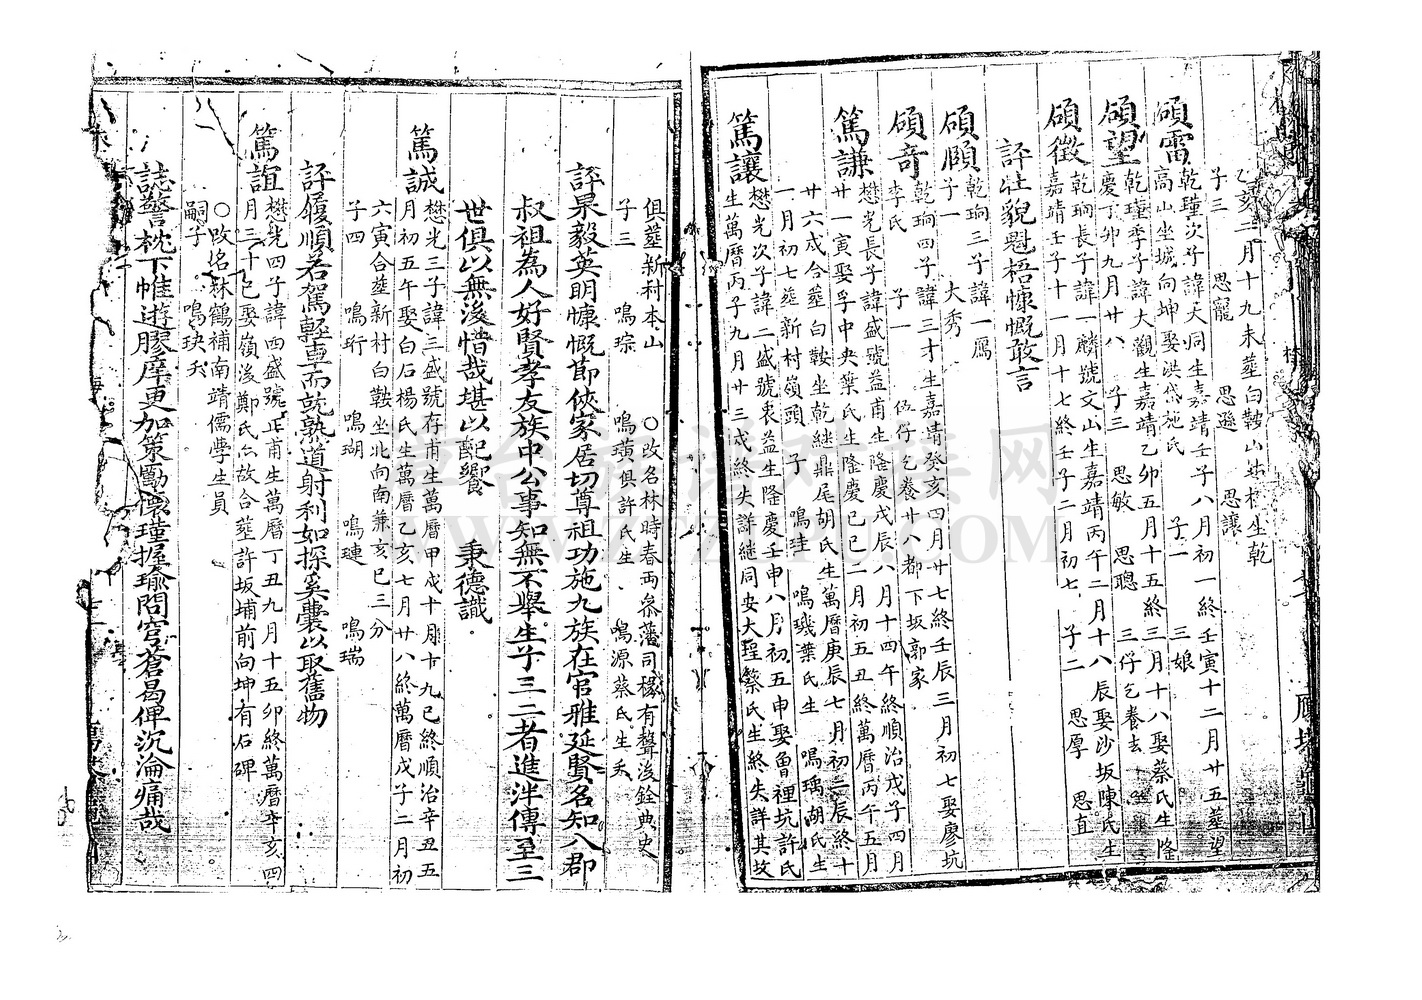 乙亥二月十九未葬白鞍山坐
子三 思寵 思遜 思讓
碩雷 乾瑾次子諱天洞生嘉靖壬子八月初一終壬寅十二月廿五葬望
高山坐城向坤娶洪岱施氏 子一 三娘
碩望 乾瑾季子諱大觀生嘉靖乙卯五月十五終三月十八娶蔡氏生隆
慶丁卯九月廿八 子三 思敏 思聰 三仔乞養去
碩徵 乾珦長子諱一麟號文山生嘉靖丙午二月十八辰娶沙坂陳氏生
嘉靖壬子十一月十七終壬子二月初七 子二 思厚 思直
評壯貌魁梧慷慨敢言
碩頎 乾珦三子諱一鴈
子一 大秀
碩奇 乾珦四子諱三才生嘉靖癸亥四月廿七終壬辰三月初七娶廖坑
李氏 子一 伍仔乞養廿八都下坂郭家
篤謙 懋光長子諱盛號益甫生隆慶戊辰八月十四午終順治戊子四月
廿一寅娶孚中央葉氏生隆慶己巳二月初五丑終萬曆丙午五月
廿六戌合葬白鞍坐乾繼鼎尾胡氏生萬曆庚辰七月初二辰終十
一月初七葬新村嶺頭 子 鳴珪 鳴璣葉氏生 鳴瑀胡氏生
篤讓 懋光次子諱二盛號衷益生隆慶壬申八月初五申娶魯裡坑許氏
生萬曆丙子九月廿三戌終失詳繼同安大埕蔡氏生終失詳其攻
俱葬新村本山 ○改名林時春両叅藩司椽有聲後銓典史
子三 鳴琮 鳴璜俱許氏生 鳴源蔡氏生夭
評果毅英明慷慨節俠家居切尊祖功施九族在官雅延賢名知八郡
叔祖為人好賢孝友族中公事知無不舉生子三二者進泮傳至三
世俱以無後惜哉堪以配饗 秉德識
篤誠 懋光三子諱三盛號存甫生萬曆甲戌十月廿九巳終順治辛丑五
月初五午娶白石楊氏生萬曆乙亥七月廿八終萬曆戊子二月初
六寅合葬新村白鞍坐北向南兼亥巳三分
子四 鳴珩 鳴瑚 鳴璉 鳴瑞
評履順若駕輕車而就熟道射利如探奚囊以取舊物
篤誼 懋光四子諱四盛號正甫生萬曆丁丑九月十五卯終萬曆辛亥四
月三十巳娶嶺後鄭氏亡故合葬許坂埔前向坤有石碑
○改名鉥鶴補南靖儒學生員
嗣子 鳴玦夭
誌警枕下帷遊膠庠更加策勵懷瑾握瑜問穹蒼曷俾沉淪痛哉